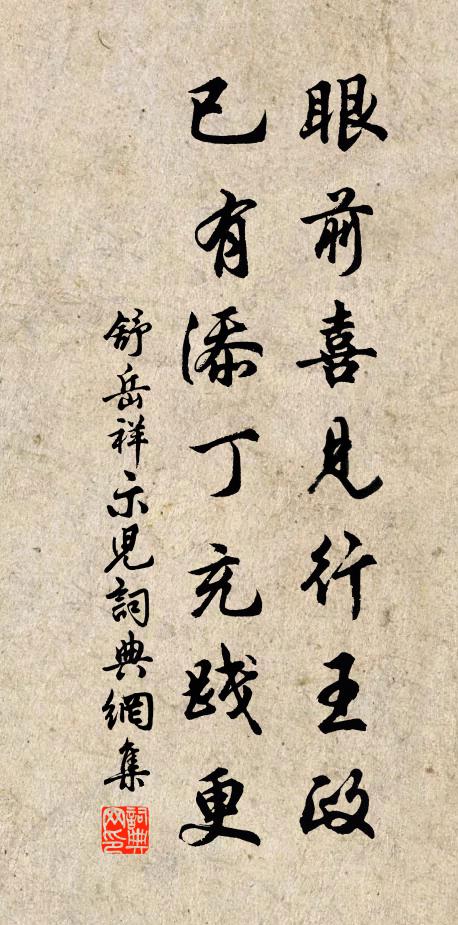 眼前喜見行王政
已有添丁充踐更
舒岳祥示兒詞典網集
詞典网印